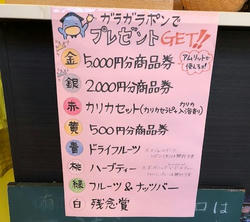 ガラガラポンで
プレゼントGET!!
金 5,000円分商品券
銀 2,000円分商品券
赤 カリカセット(カリカセラピ&入浴剤)
黄 500円分商品券
青 ドライフルーツ
桃 ハーブティー
緑 フルーツ&ナッツバー
白 残念賞